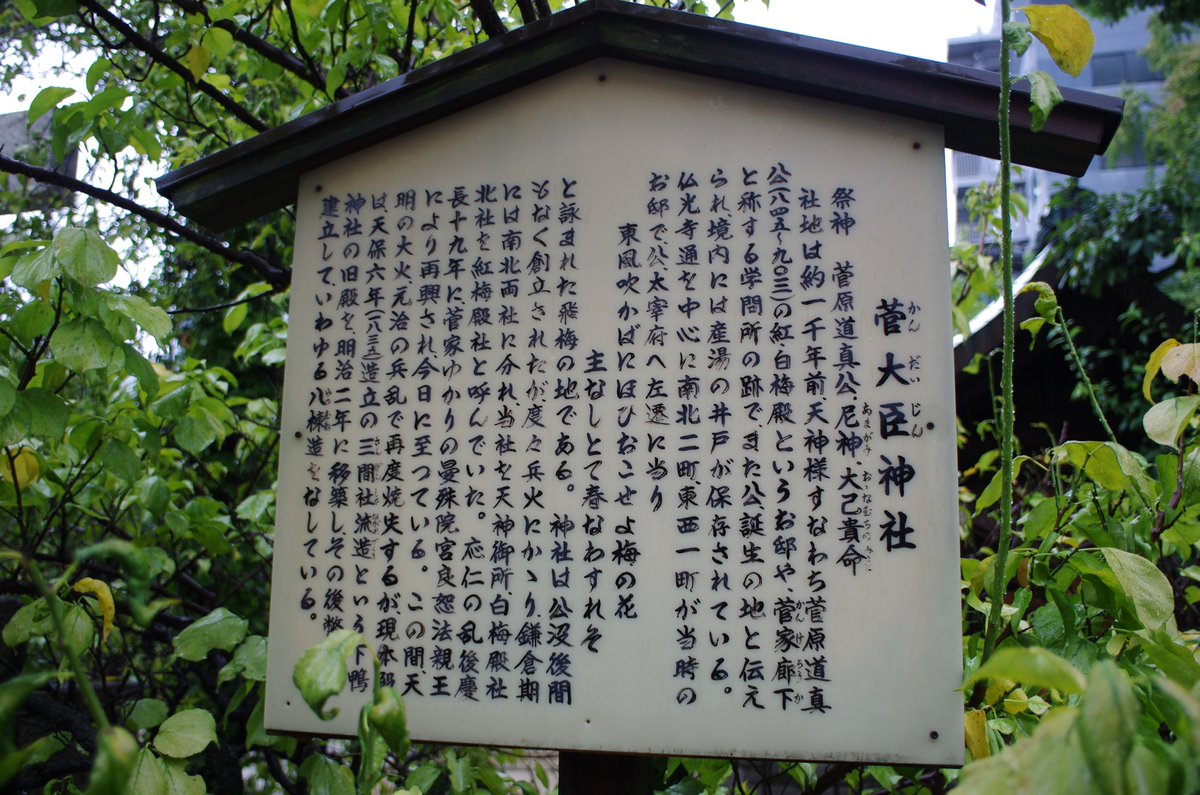 菅大臣神社
かんだいじん
祭神 菅原道真公、尼神、大己貴命
あまがみ おおなむちのみこと
社地は約一千年前天神様すなわち菅原道真
公(八四五~九〇三)の紅白梅殿というお邸や、菅家廊下
かんけろうか
と称する学問所の跡で、また公誕生の地と伝え
られ、境内には産湯の井戸が保存されている。
仏光寺通を中心に南北二町、東西一町が当時の
お邸で、公、太宰府へ左遷に当り
東風吹かばにほひおこせよ梅の花
主なしとて春なわすれそ
と詠まれた飛梅の地である。 神社は公没後間
もなく創立されたが度々兵火にかゝり、鎌倉期
には南北両社に分れ当社を天神御所、白梅殿社
北社を紅梅殿社と呼んでいた。応仁の乱後慶
長十九年に、菅家ゆかりの曼殊院宮良恕法親王
により再興され今日に至つている。この間、天
明の大火、元治の兵乱で再度焼失するが、現本殿
は天保六年(一八三五)造立の三間社流造という下鴨
神社の旧殿を、明治二年に移築し、その後幣
建立していわゆる八棟造をなしている。